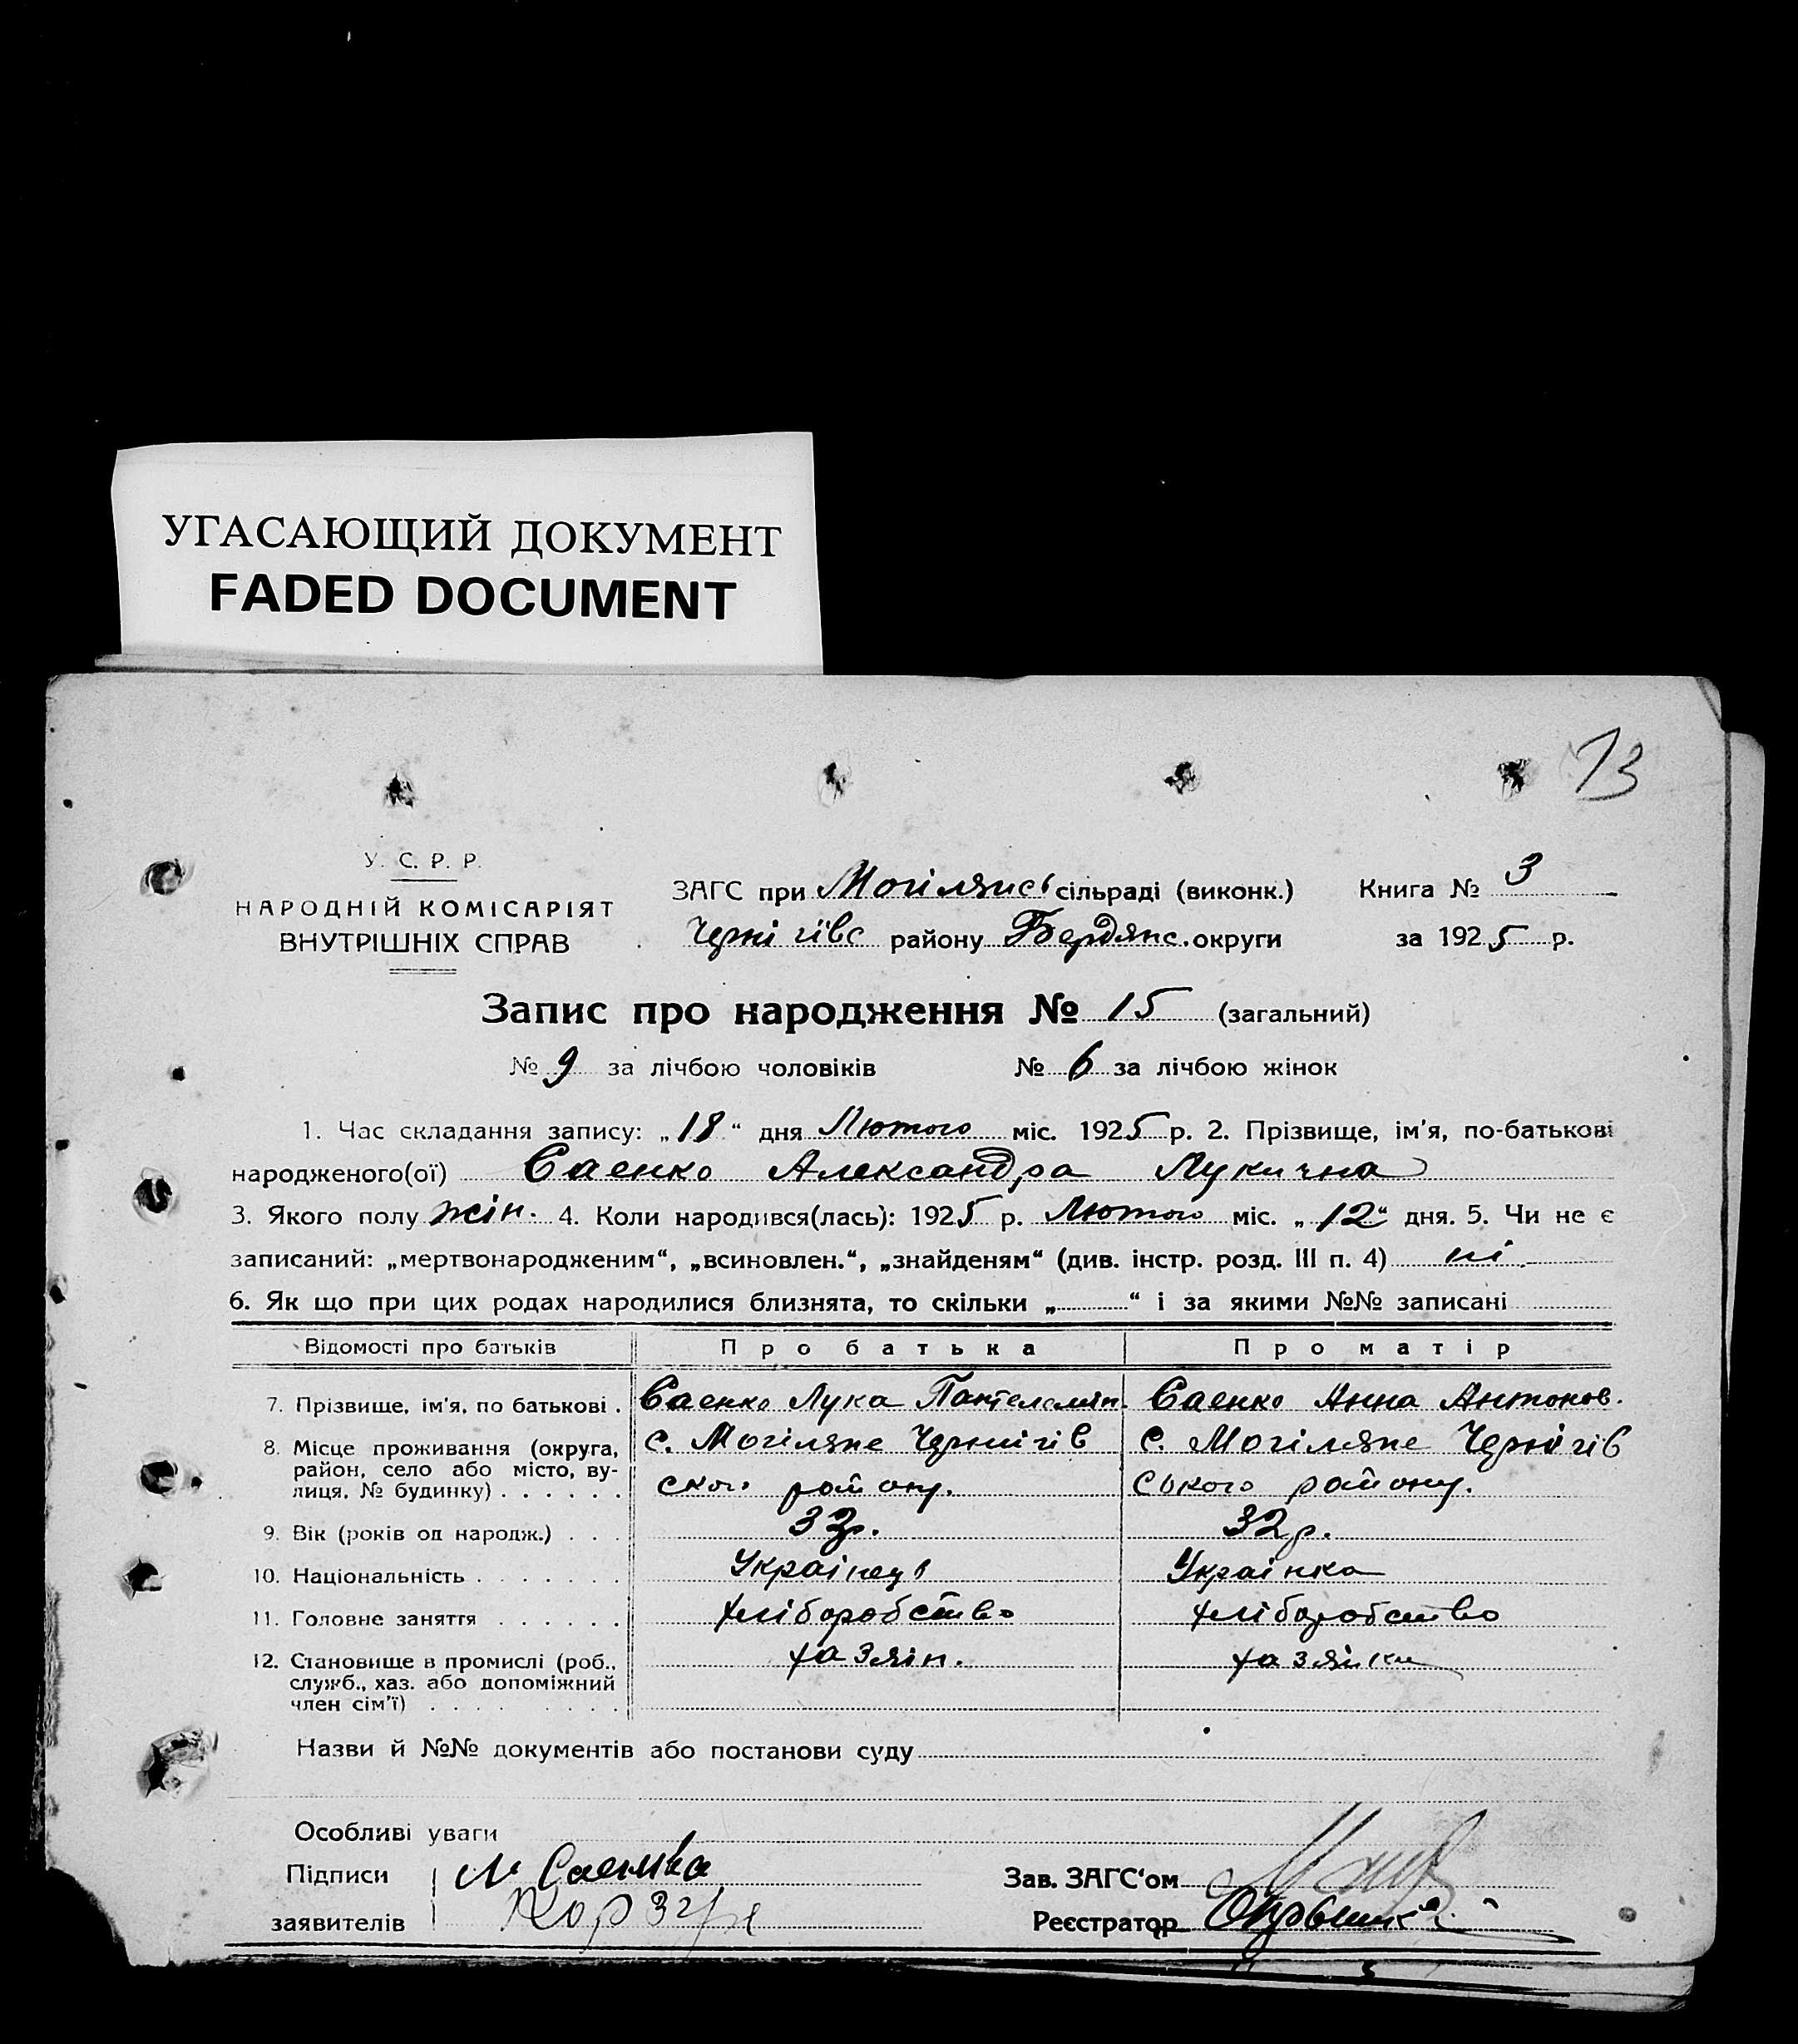 УГАСАЮЩИЙ ДОКУМЕНТ
FADED DOCUMENT
13
У. С. Р. Р.
НАРОДНІЙ КОМІСАРІЯТ
ВНУТРІШНІХ СПРАВ
ЗАГС при Могілянсь сільраді (виконк.) Книга № 3
Чернігівс району Бердянс. округи за 1925 р.
Запис про народження № 15 (загальний)
№ 9 за лічбою чоловіків № 6 за лічбою жінок
1. Час складання запису: „18“ дня Лютого міс. 1925 р. 2. Прізвище, ім'я, по-батькові
народженого(ої) Саенко Александра Лукична
3. Якого полу жін. 4. Коли народився(лась): 1925 р. Лютого міс. „12“ дня. 5. Чи не є
записаний: „мертвонародженим“, „всиновлен.“, „знайденям“ (див. інстр. розд. III п. 4) ні
6. Як що при цих родах народилися близнята, то скільки „............“ і за якими №№ записані
Відомості про батьків Про батька Про матір
7. Прізвище, ім'я, по батькові . Саенко Лука Пантелемін. Саенко Анна Антонов.
8. Місце проживання (округа, район, село або місто, вулиця, № будинку) . . . . . . с. Могіляне Чернигів с. Могіляне Чернігів
ского району. ського району.
9. Вік (років од народж.) . . . 32р. 32р.
10. Національність . . . . . . . Українець Українка
11. Головне заняття . . . . . . хліборобство хліборобство
12. Становище в промислі (роб., служб., хаз. або допоміжний член сім'ї) . . . . . . . . . хазяін. хазяйка
Назви й №№ документів або постанови суду
Особливі уваги
Підписи Л Саенка Зав. ЗАГС‘ом
заявителів Реєстратор